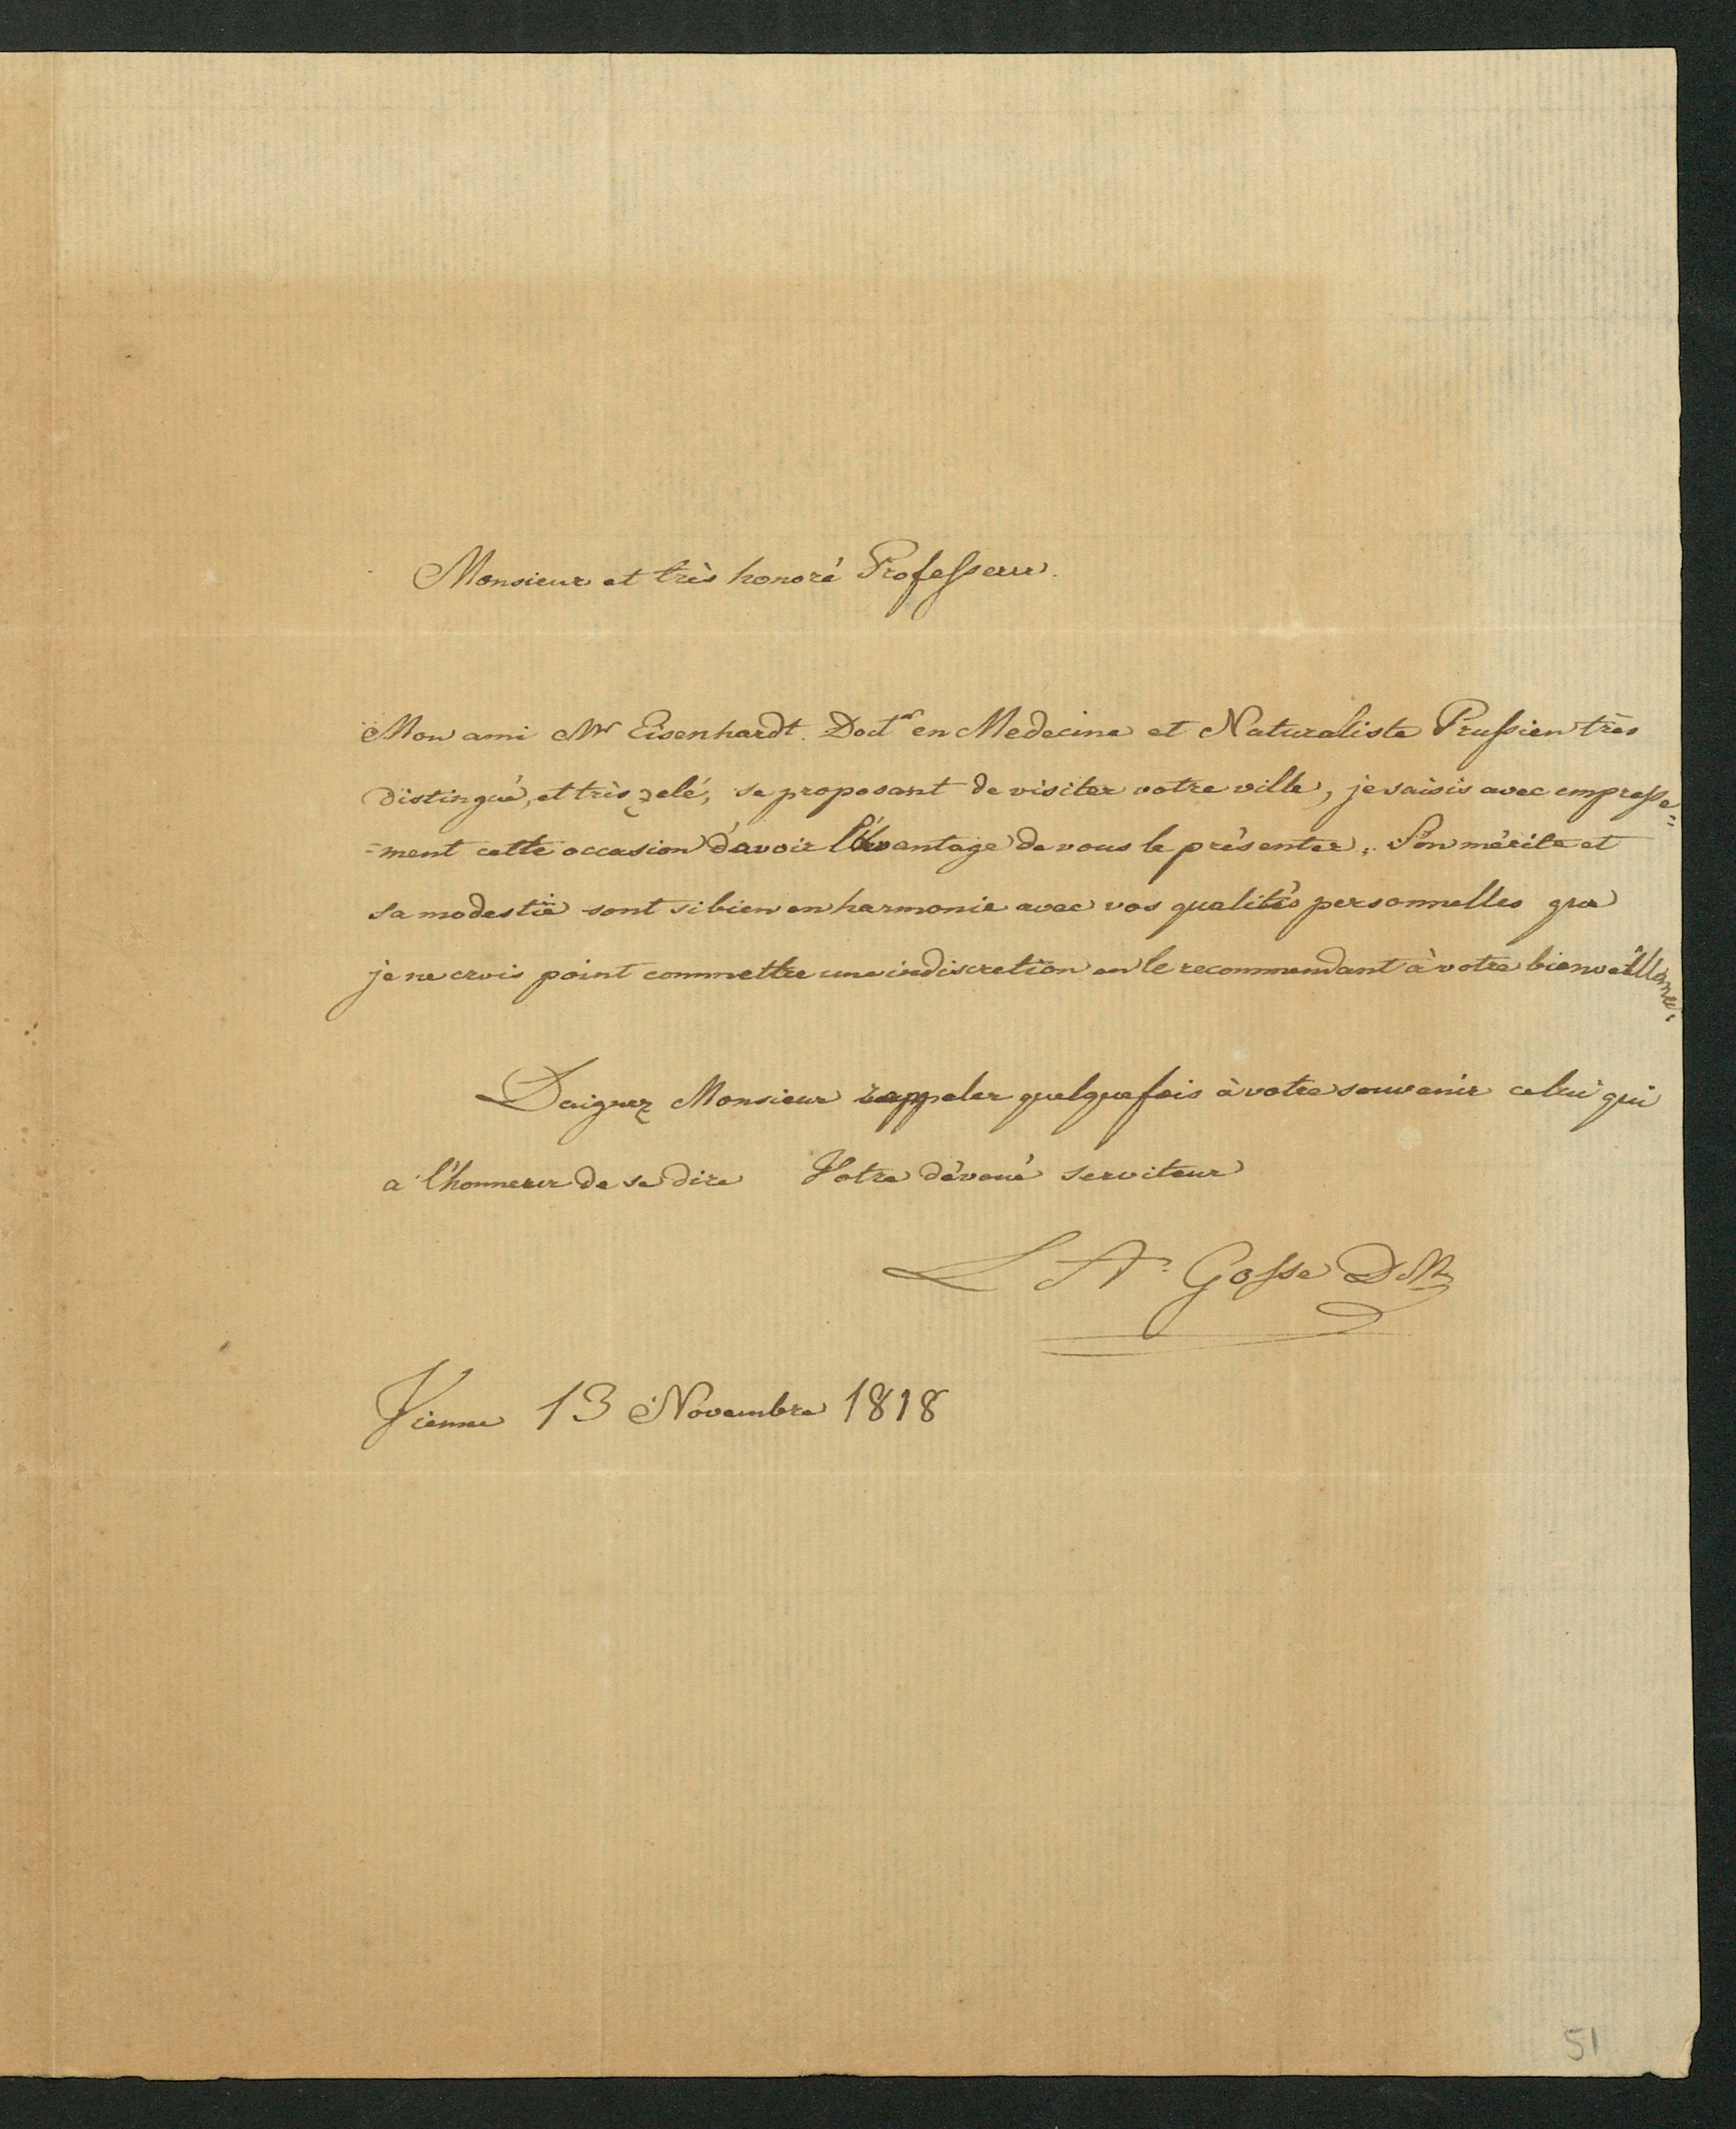 Monsieur et très honoré Professeur.
Mon ami Mr Eisenhardt. Doctr en Medecine et Naturaliste Prussien très
distingué, et très zelé, se proposant de visiter votre ville, je saisis avec empresse=
=ment cette occasion d'avoir l'avantage de vous le présenter. Son mérite et
sa modestie sont si bien en harmonie avec vos qualités personnelles que
je ne crois point commettre une indiscretion en le recommendant à votre bienveillance.
Daignez Monsieur rappeler quelquefois à votre souvenir celui qui
a l'honneur de se dire Votre dévoué serviteur
L A. Gosse DM
Vienne 13 Novembre 1818
51